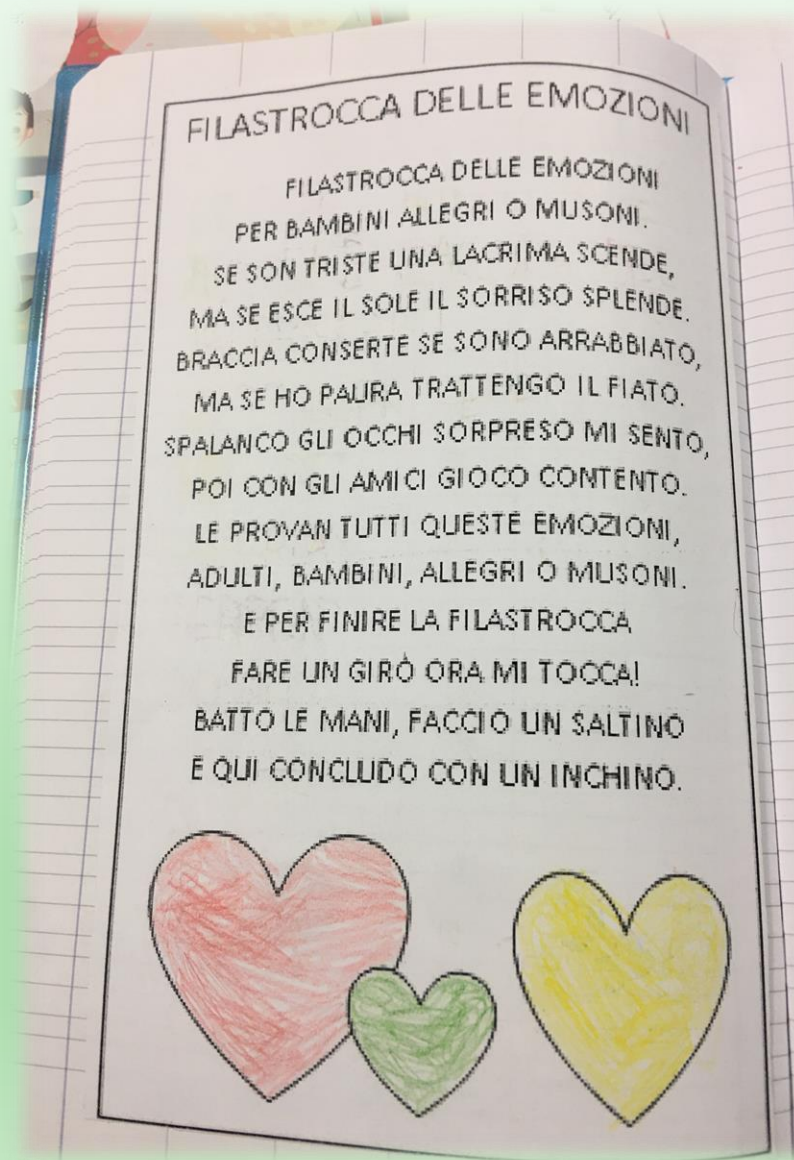 FILASTROCCA DELLE EMOZIONI
FILASTROCCA DELLE EMOZIONI
PER BAMBINI ALLEGRI O MUSONI.
SE SON TRISTE UNA LACRIMA SCENDE,
MA SE ESCE IL SOLE IL SORRISO SPLENDE.
BRACCIA CONSERTE SE SONO ARRABBIATO,
MA SE HO PAURA TRATTENGO IL FIATO.
SPALANCO GLI OCCHI SORPRESO MI SENTO,
POI CON GLI AMICI GIOCO CONTENTO.
LE PROVAN TUTTI QUESTE EMOZIONI,
ADULTI, BAMBINI, ALLEGRI O MUSONI.
E PER FINIRE LA FILASTROCCA
FARE UN GIRÒ ORA MI TOCCA!
BATTO LE MANI, FACCIO UN SALTINO
E QUI CONCLUDO CON UN INCHINO.